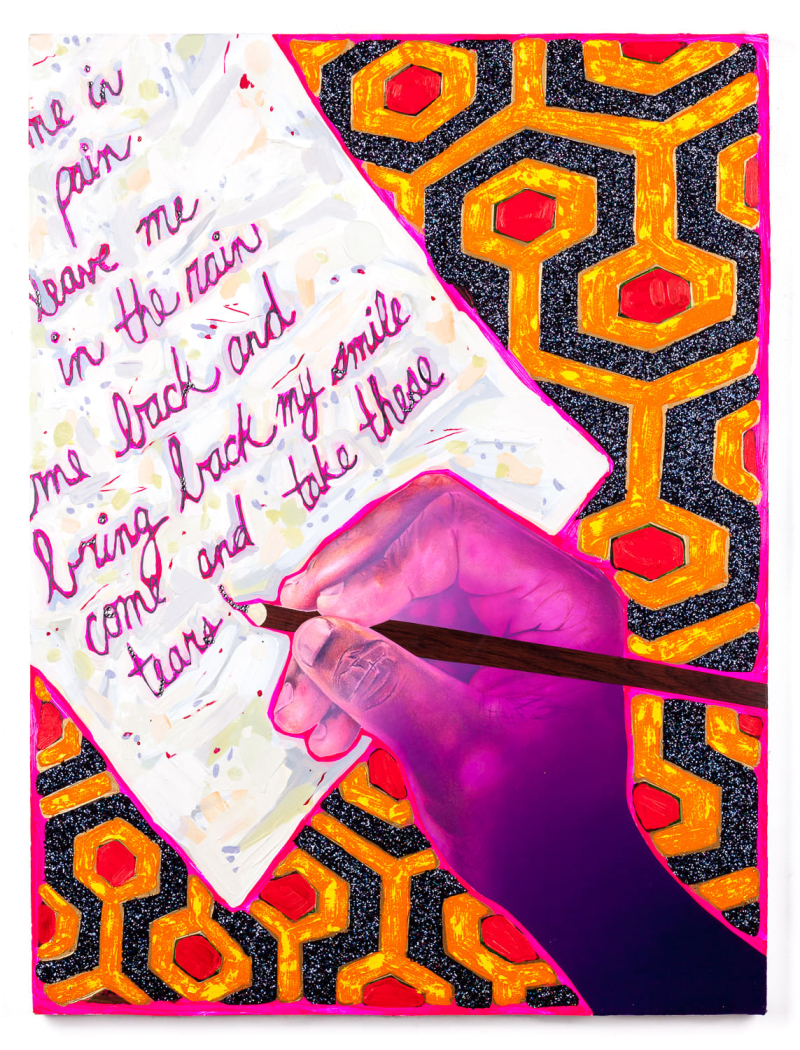 me in
pain
leave me
in the rain
me back and
bring back my smile
come and take these
tears